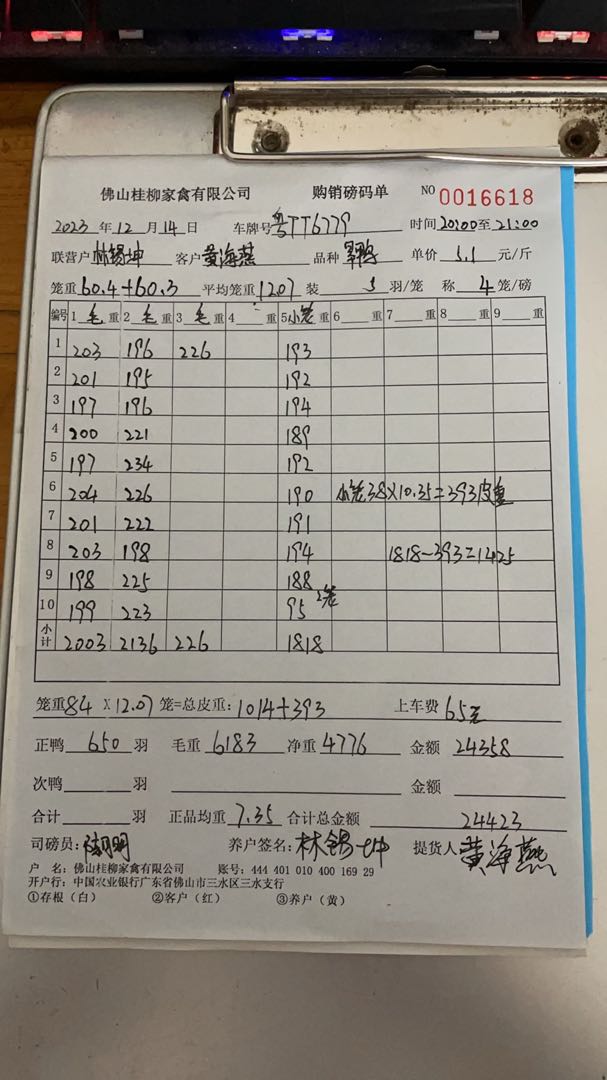 佛山桂柳家禽有限公司 购销磅码单 NO 0016618
2023 年 12 月 14 日 车牌号 粤TT6779 时间 20:00 至 21:00
联营户 林锡坤 客户 黄海燕 品种 单价 5.1 元/斤
笼重 60.4+60.3 平均笼重 1207 装 5 羽/笼 称 4 笼/磅
编号 1 毛 重 2 毛 重 3 毛 重 4 重 5 小笼 重 6 重 7 重 8 重 9 重
1 203 196 226 193
2 201 195 192
3 197 196 194
4 200 221 189
5 197 234 192
6 204 226 190 小笼38×10.35=393皮重
7 201 222 191
8 203 198 194 1818-393=1425
9 198 225 188
10 199 223 95 2笼
小计 2003 2136 226 1818
笼重 84 × 12.07 笼=总皮重: 1014+393 上车费 65元
正鸭 650 羽 毛重 6183 净重 4776 金额 24358
次鸭 羽 金额
合计 羽 正品均重 7.35 合计总金额 24423
司磅员: 养户签名: 林锡坤 提货人 黄海燕
户 名: 佛山桂柳家禽有限公司 账号: 444 401 010 400 169 29
开户行: 中国农业银行广东省佛山市三水区三水支行
①存根(白) ②客户(红) ③养户(黄)